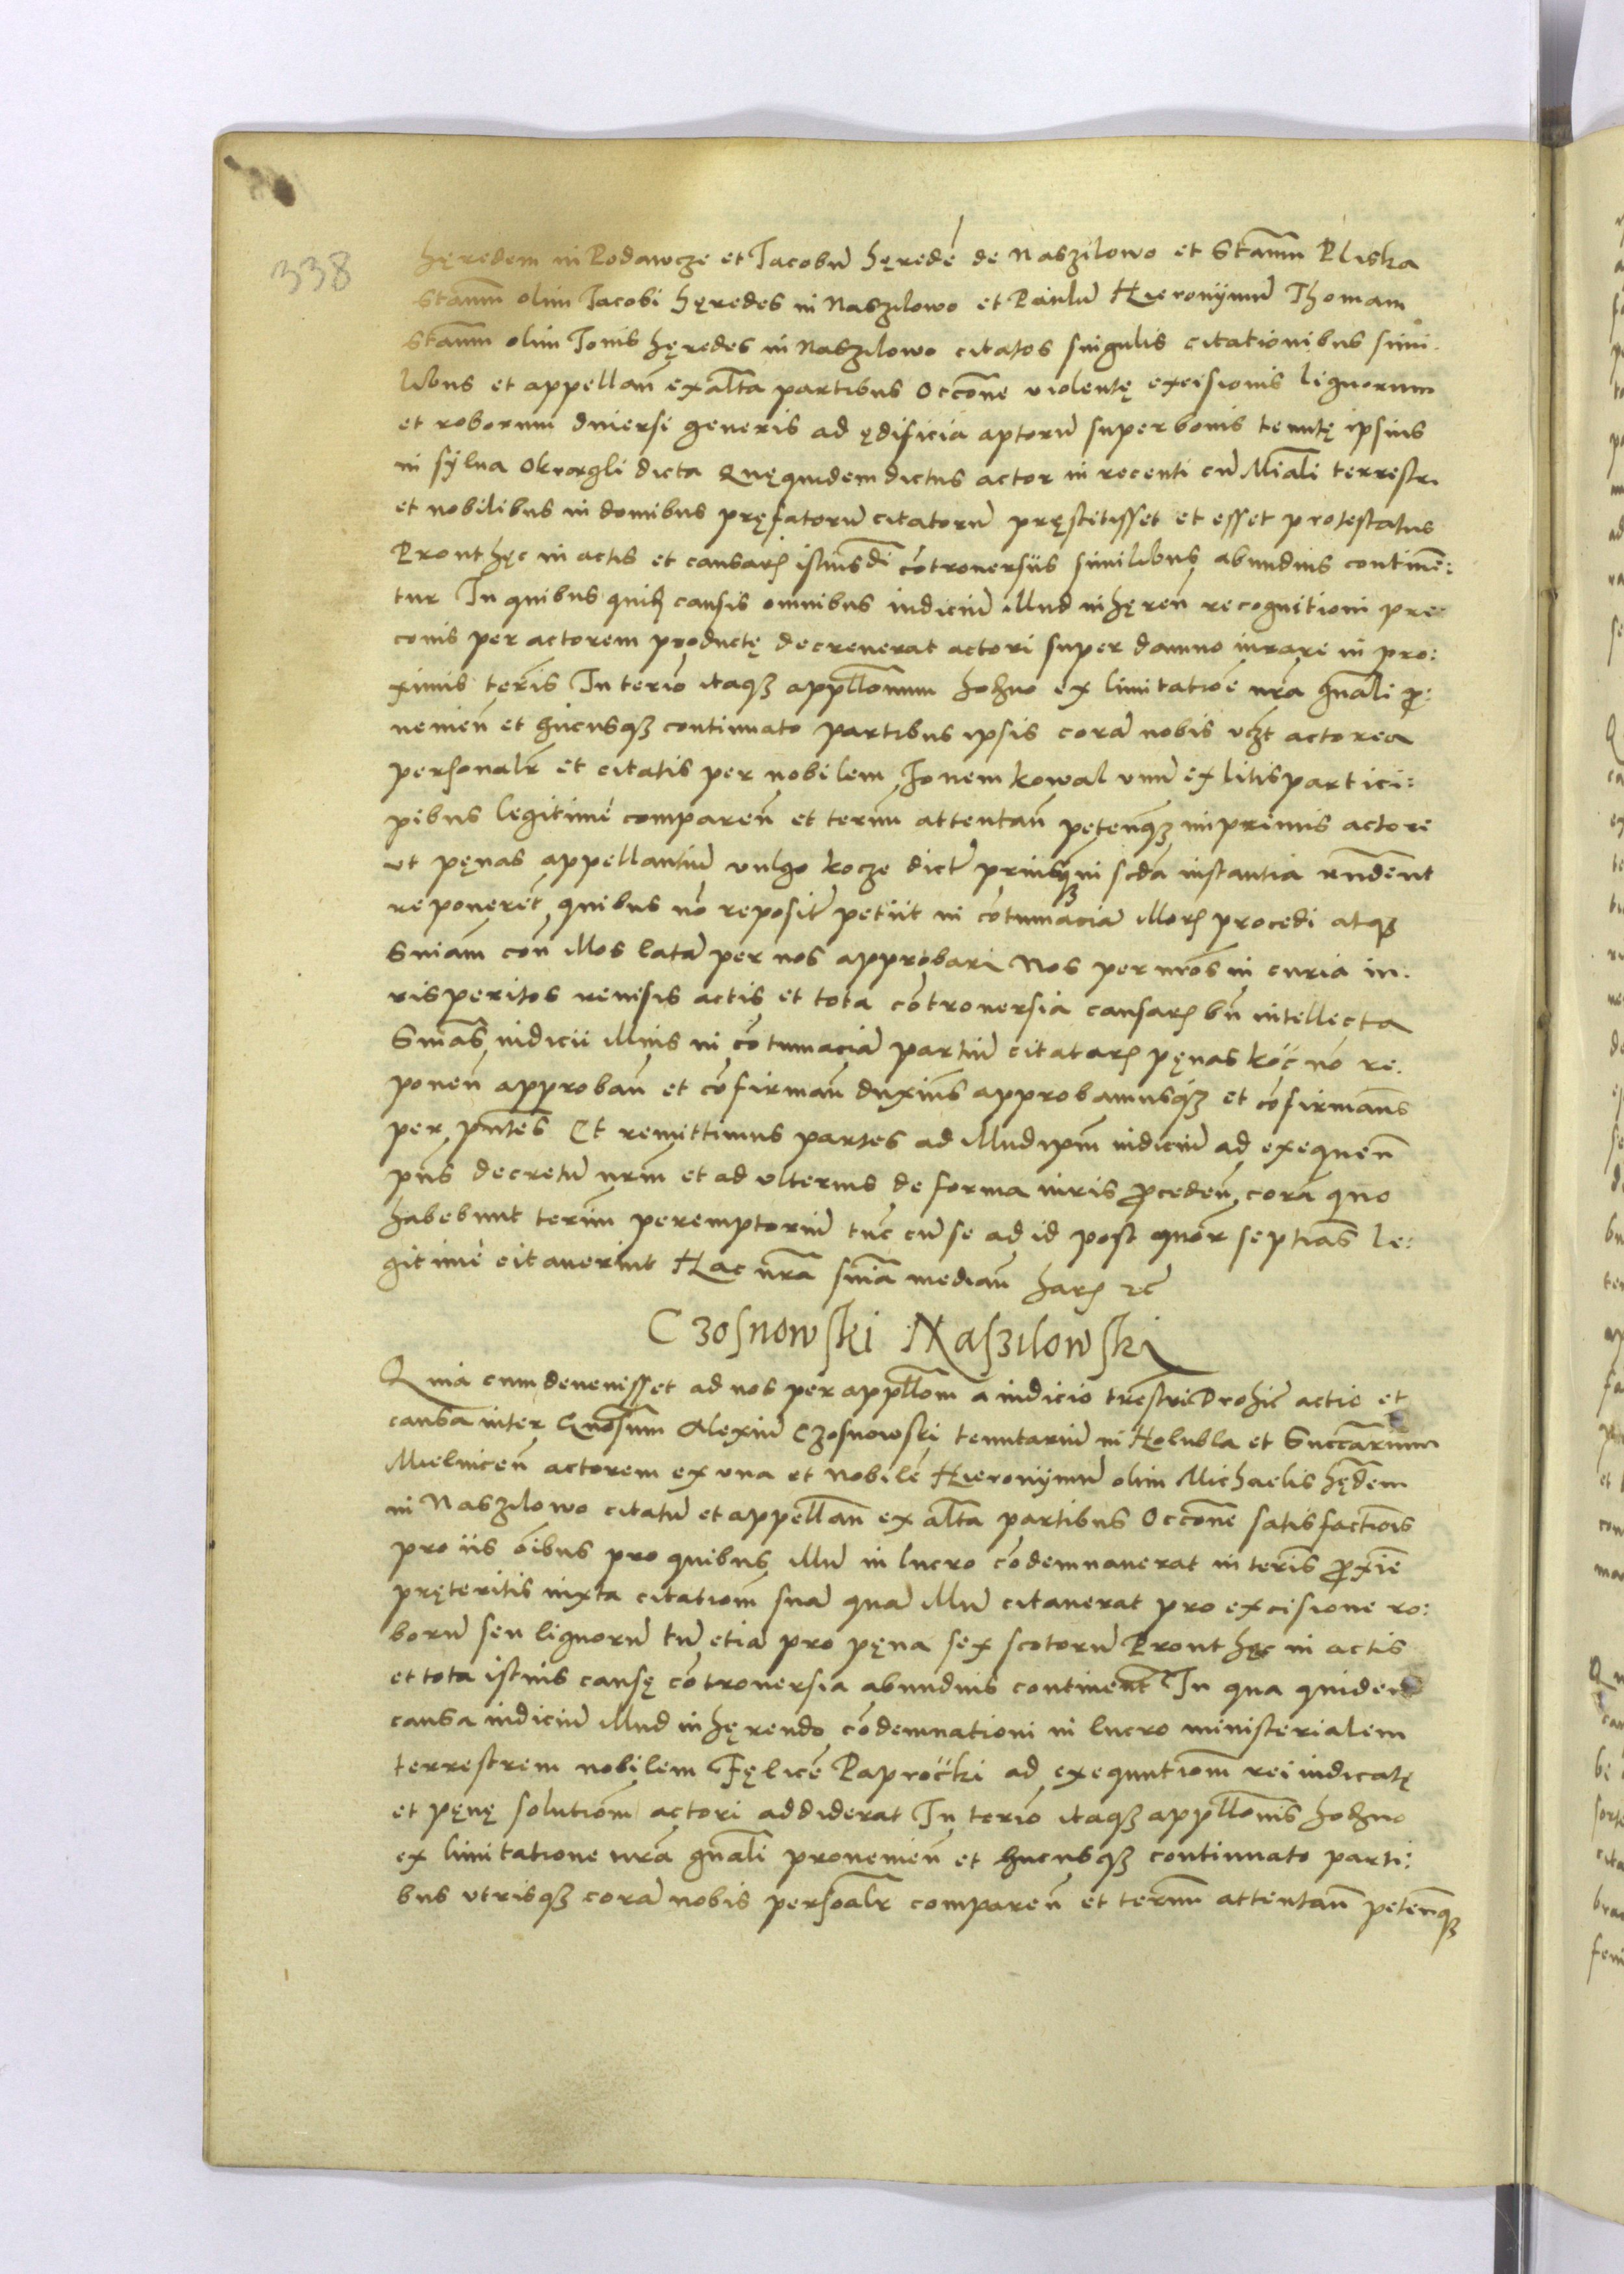 338
hęredem in Podawcze et Jacobū hęredē de Naszilowo et Stanū Pliska
Stanū olim Jacobi hęredes in Naszilowo et Paulū Hieronijmū Thomam
Stanū olim Joñis hęredes in Naszilowo citatos singulis citationibus simi.
libus et appellañ ex alta partibus Occōne violentę excisionis lignorum
et roborum diuersi generis ad ędificia aptorū super bonis tenutę ipsius
in sylua Okrągli dicta Quę quidem dictus actor in recenti cū Miāli terrestri
et nobilibus in domibus pręfatorū citatorū pręstitisset et esset protestatus
Prout hęc in actis et causarȝ istiusdi cōtrouersiis similibus abundius contineñ:
tur In quibus quidē causis omnibus iudiciū illud inhęreñ recognitioni pre
conis per actorem productę decreuerat actori super damno iurare in pro:
ximis teris In teriō itaqȝ appllonum hodzno ex limitatiōe nrā gnāli p̄:
ueniēn et hucusqȝ continuato partibus ipsis corā nobis vczt actorea
personalr et citatis per nobilem Joñem Kowal vnū ex litis partici:
pibus legitime compareñ et termū attentañ peteñqȝ inprimis actore
vt pęnas appellantiū vulgo kocze dict priusqȝ in scda instantia rndēnt
reponerēt quibus nō reposit petiit in cōtumaciā illorȝ procedi atqȝ
Sniam con illos latā per nos approbari Nos per nros in curia iu.
risperitos reuisis actis et tota cōtrouersia causarȝ bn intellecta
Snias iudicii illius in cōtumaciā partiū citatarȝ pęnas koc nō re.
poneñ approbañ et cōfirmañ duximus approbamusqȝ et cōfirmams
per pntes Et remittimus partes ad illud ipm iudiciū ad exequeñ
pns decretū nrm et ad vlterius de forma iuris p̄cedeñ corā quo
habebunt termū peremptoriū tūc cū se ad id post quor septias le:
gitime citauerint Hac nrā sniā mediañ harȝ etc
Czosnowski Naszilowski
Quia cum deuenisset ad nos per appllom a iudicio trestri Drohic actio et
causa inter Gnosum Alexiū Czosnowski tenutariū in Holubla et Succārium
Mielnicen actorem ex vna et nobilē Hieronijmū olim Michaelis hędem
in Naszilowo citatū et appellañ ex alta partibus Occōne satisfactiōis
pro iis oibus pro quibus illū in lucro cōdemnauerat in teris p̄xie
pręteritis iuxta citatiōm suā quā illū citauerat pro excisione ro:
borū seu lignorū tū etiā pro pęna sex scotorū Prout hęc in actis
et tota istius causę cōtrouersia abundius contineñt In qua quidem
causa iudiciū illud inhęrendo cōdemnationi in lucro ministerialem
terrestrem nobilem Fęlicē Paprocki ad exequutiōm rei iudicatę
et pęnę solutiōm actori addiderat In teriō itaqȝ appllonis hodzno
ex limitatione nrā gnāli proueniēn et hucusqȝ continuato parti:
bus vtrisqȝ corā nobis persoālr compareñ et termū attentañ peteñqȝ